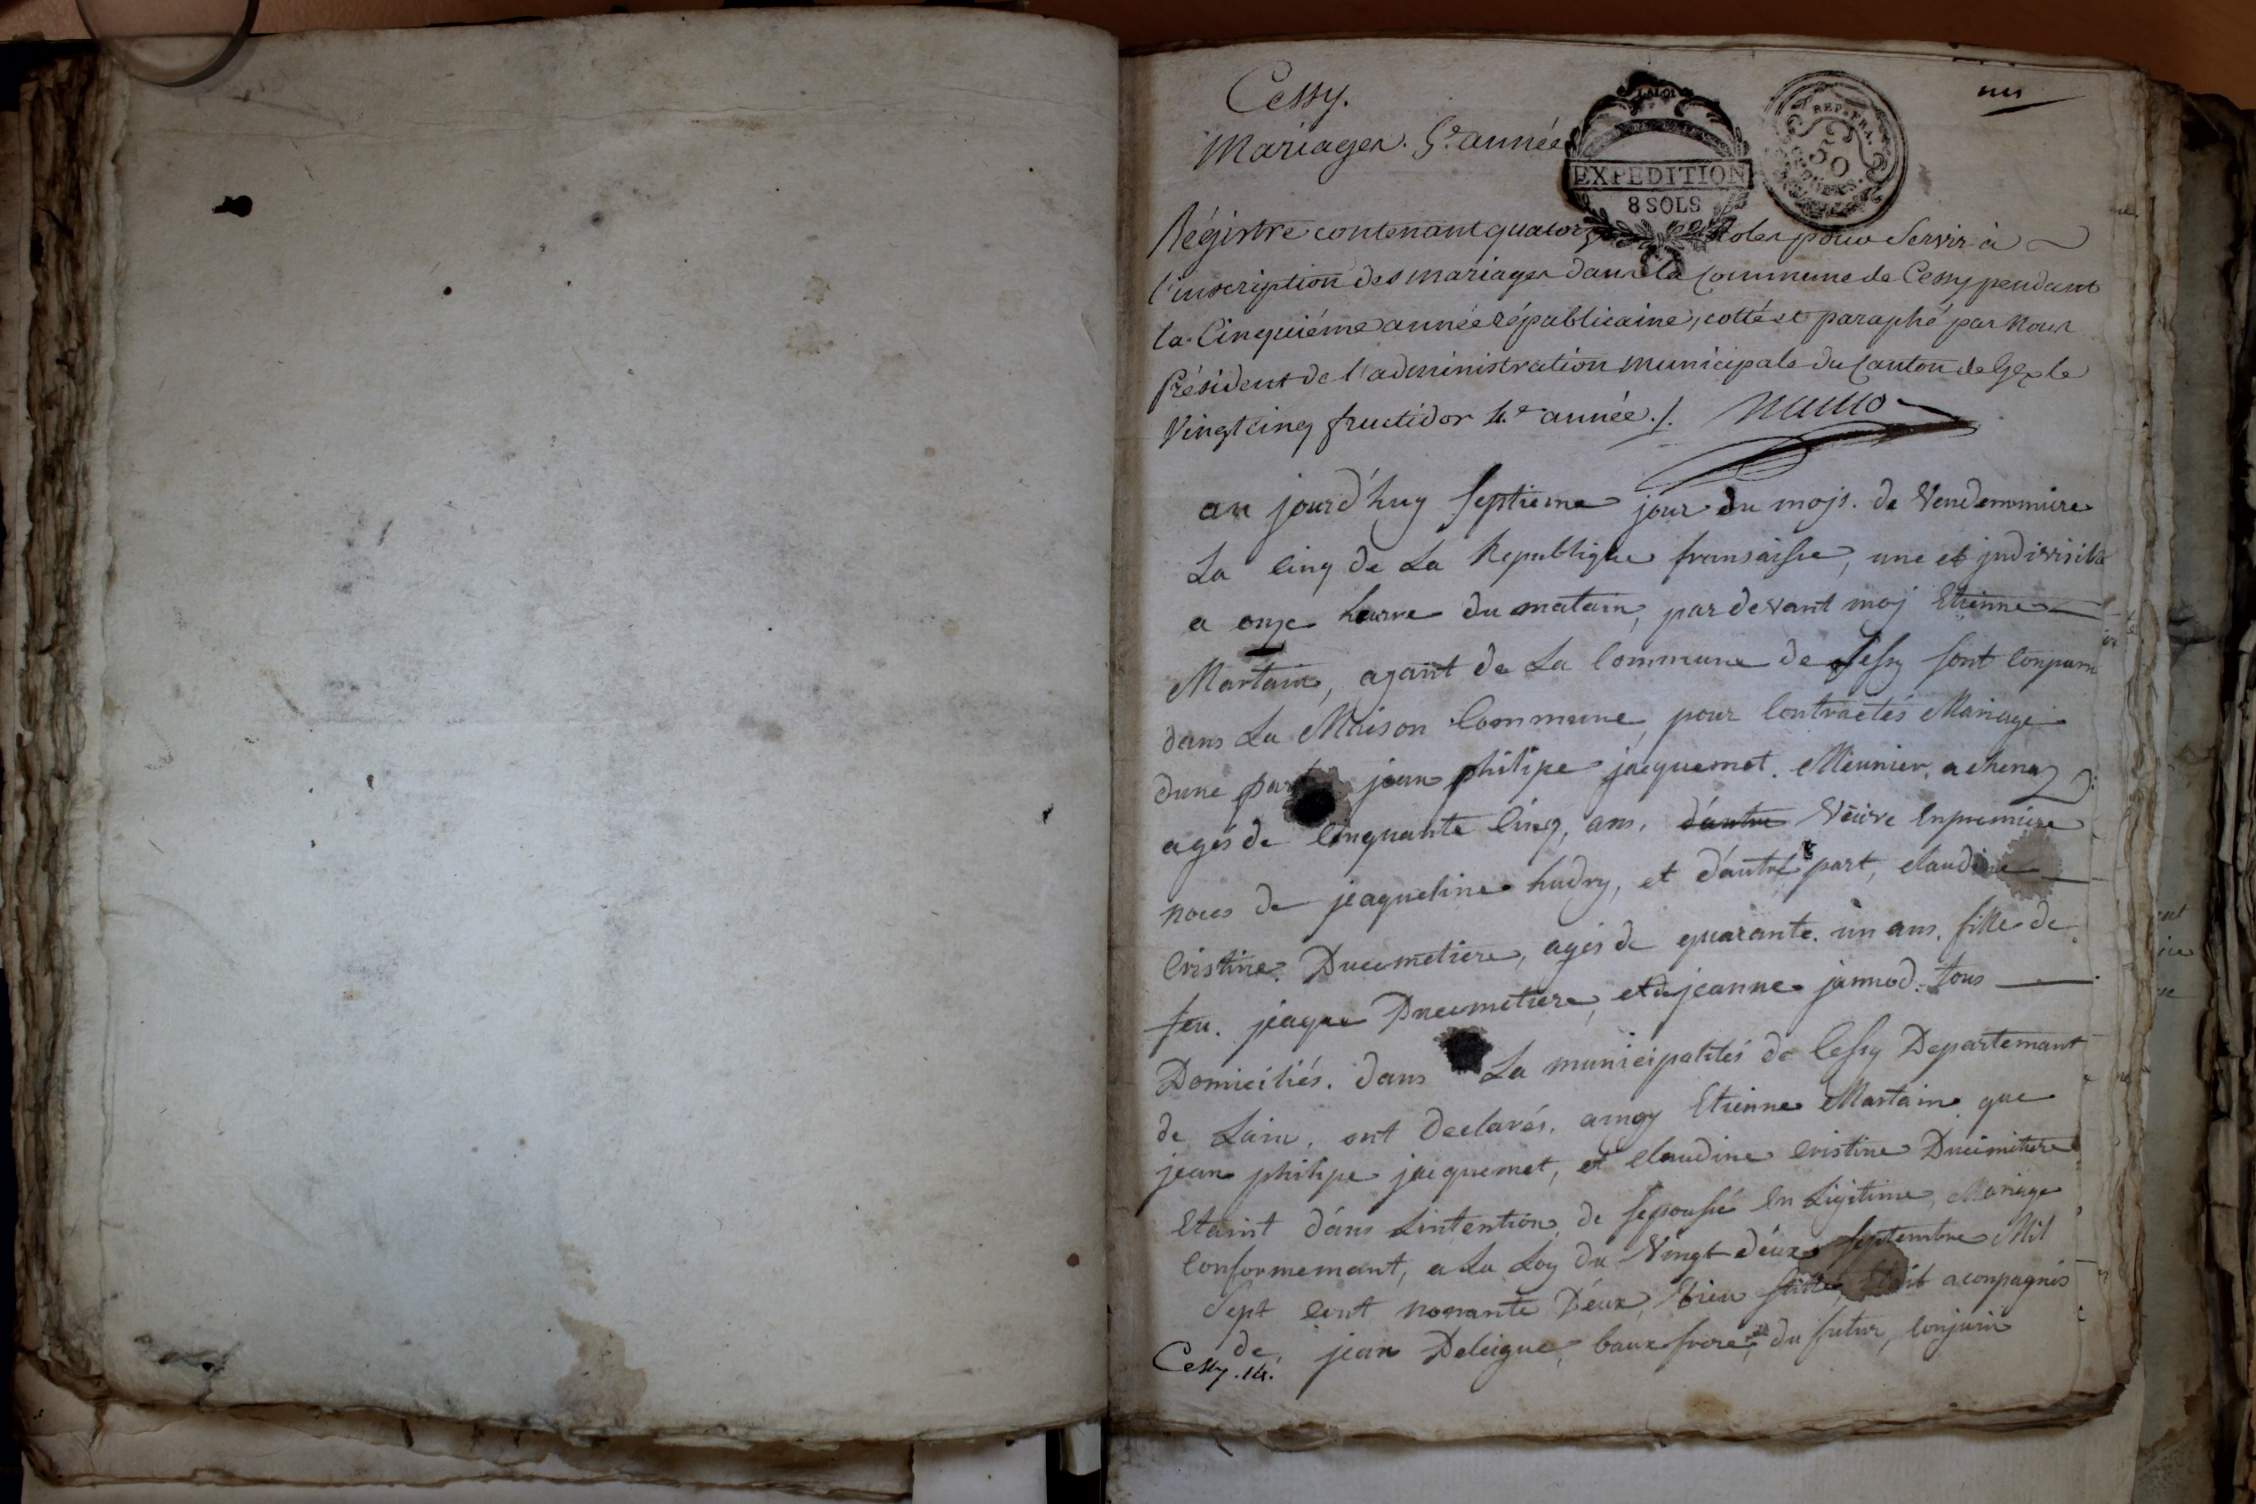 Cessy.
un
Mariages. 5.e année
LA LOI
EXPEDITION
8 SOLS
REP. FRA.
50
Régistre contenant quatorze Roles pour servir à
l'inscription des mariages dans la commune de Cessy pendant
la Cinquiéme année républicaine, cotté et paraphé par nous
Président de l'administration municipale du Canton de Gex le
Vingt cinq fructidor 4.e année ./.
au jourd'huy septieme jour du mojs. de Vendemmiire
La Cinq de La Republique fransaisse, une et jndivisible
a onze heurre du matain, par devant moj Etienne
Martain, agant de La Commune de Sessy sont Conparu
dans La Maison Commune, pour Contractés Mariage
dune part jean philipe jacquemet. Meunier, a
agés de Cinquante Cinq, ans, d'autre Veuve Enpremiere
noces de jeaqueline hudry, et d'autre part, claudine
Cristine Ducimetiere, agés de quarante. un ans, fille de
feu. jeaque Ducimetiere, et de jeanne jannod. tous
Domiciliés. dans La municipalités de Cessy Departemant
de Lain, ont declarés. amoy Etienne Martain que
jean philipe jacquemet, et Claudine Cristine Ducimitiere
Etaint dans Lintention, de sepousé En Ligitime, Mariage
Conformemant, a La Loy du Vingt deux septembre Mil
Sept Cent nonante Deux, aconpagnés
de, jean Deleigue, baux frere, du futur, Conjoin
Cessy. 14.